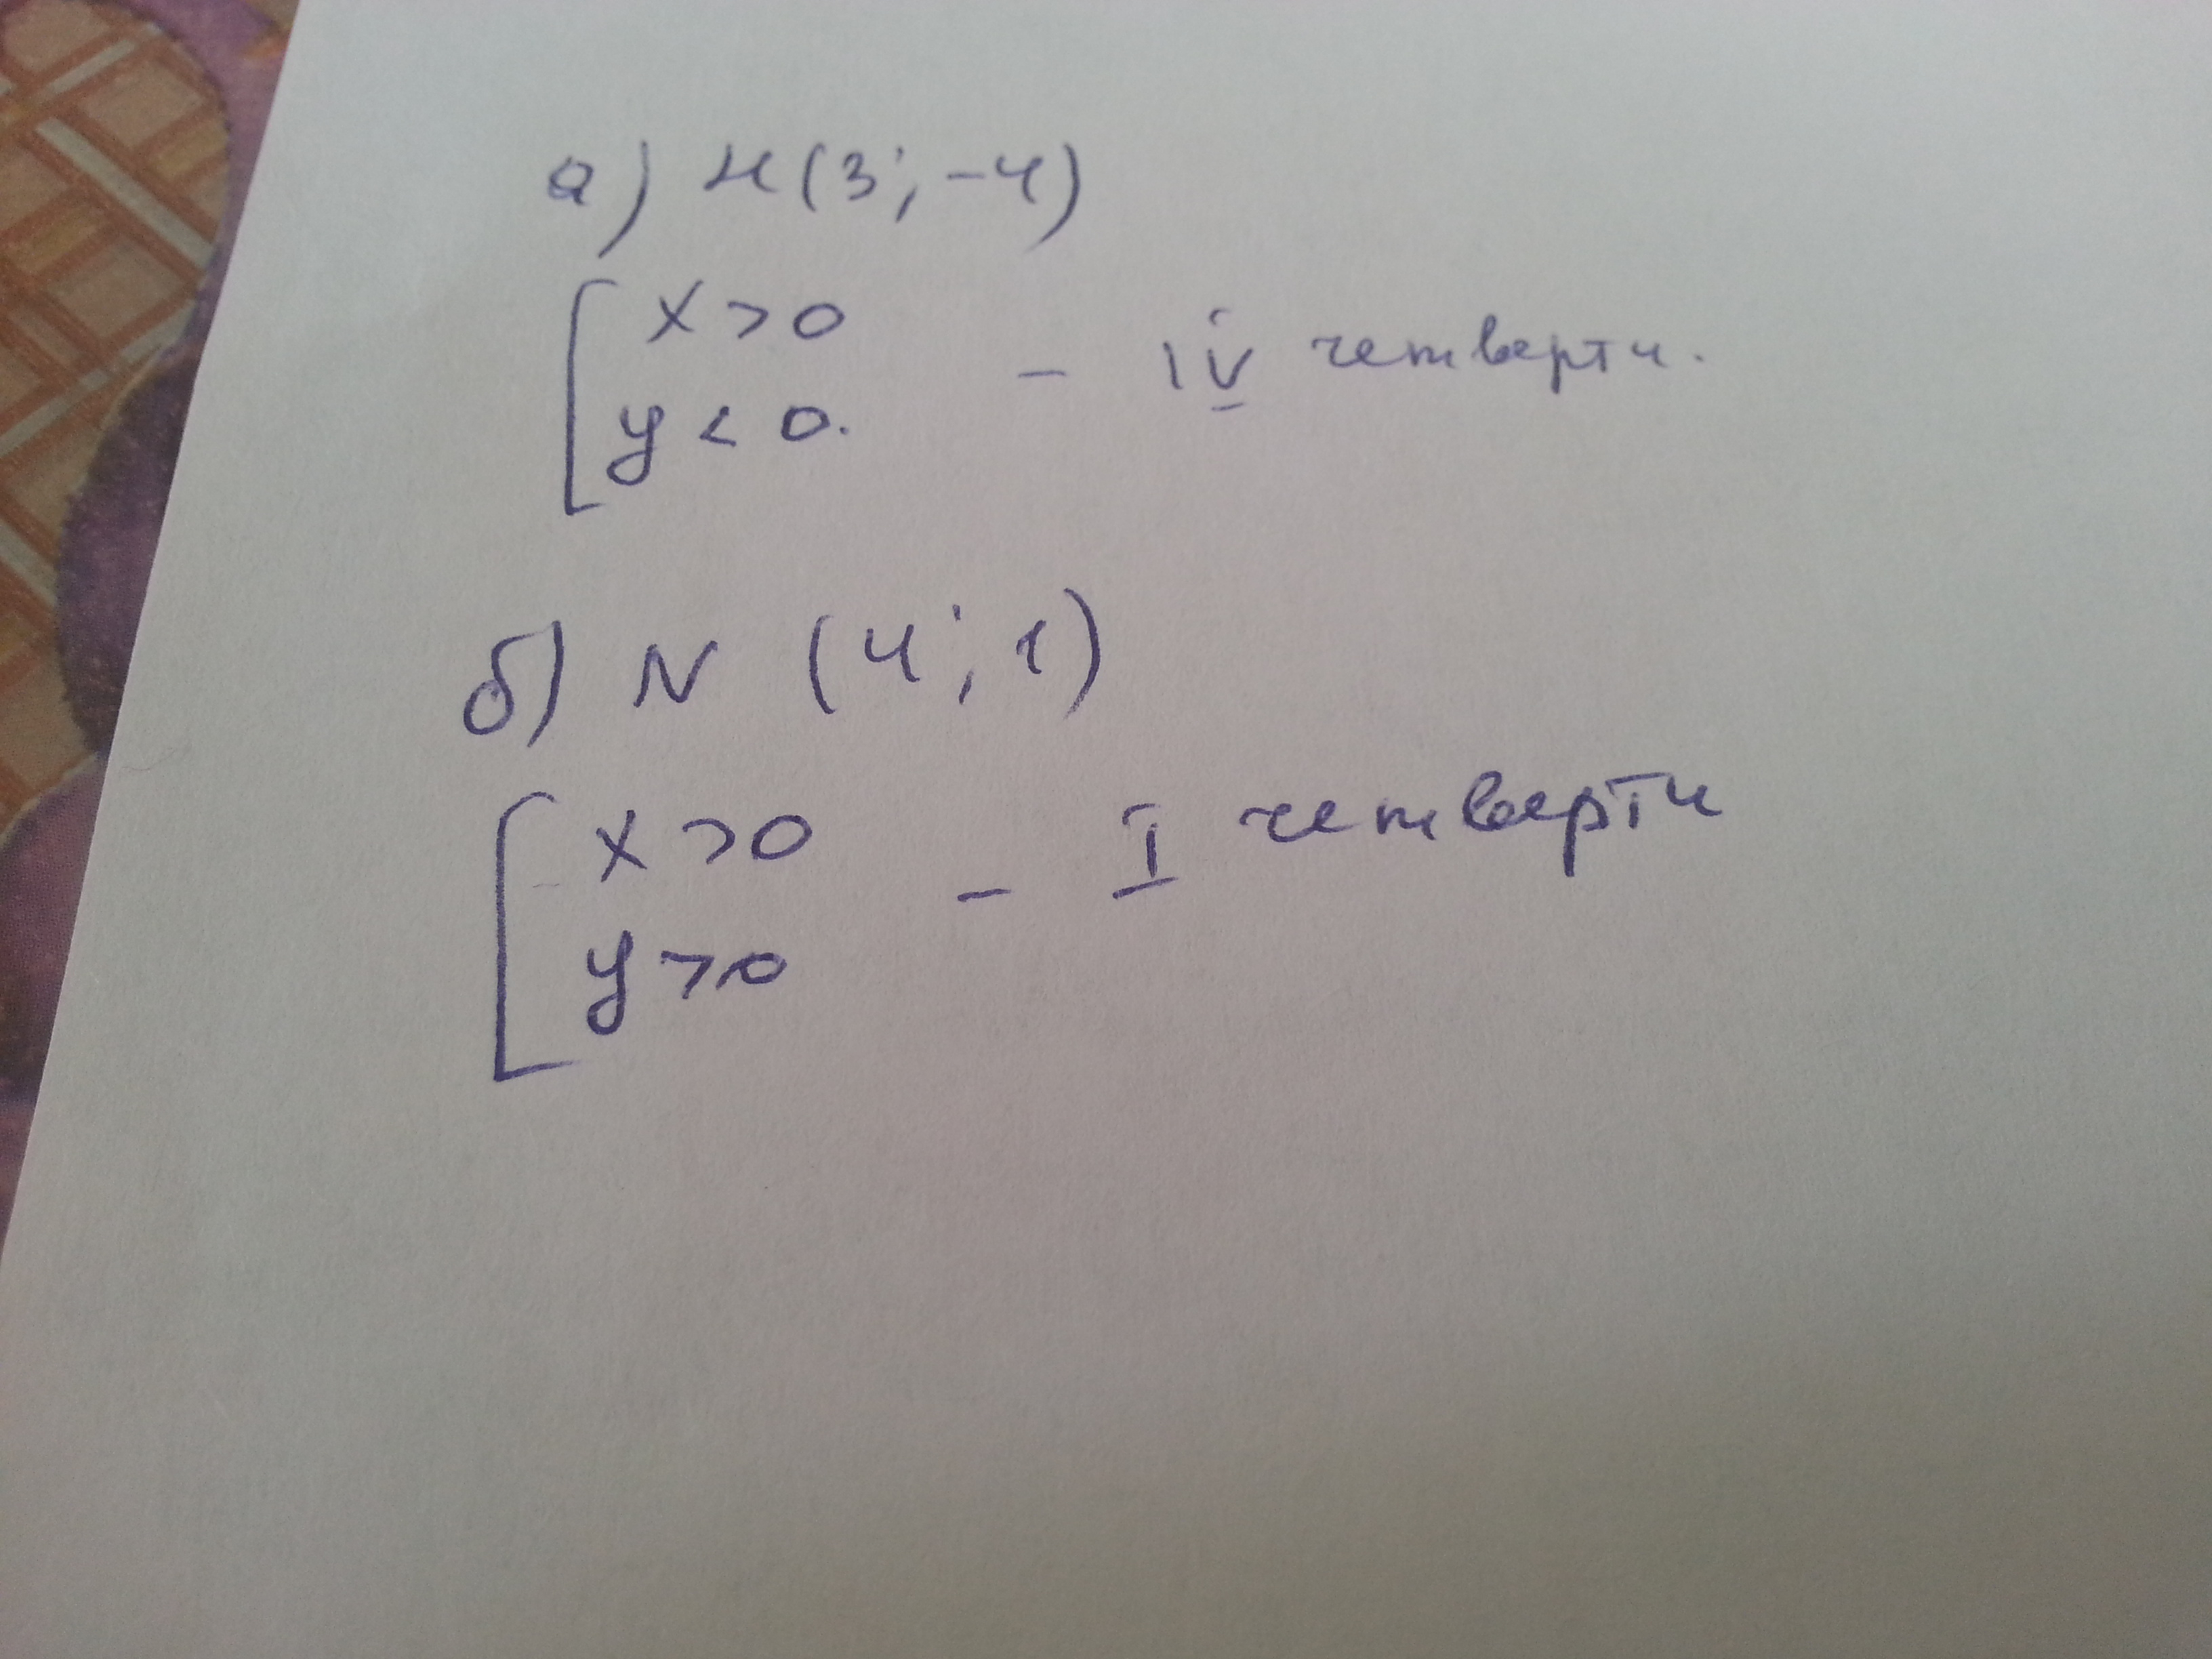 а) м(3; -4)
x > 0
y < 0. - IV четверти.
б) N (4; 1)
x > 0 - I четверти
y > 0